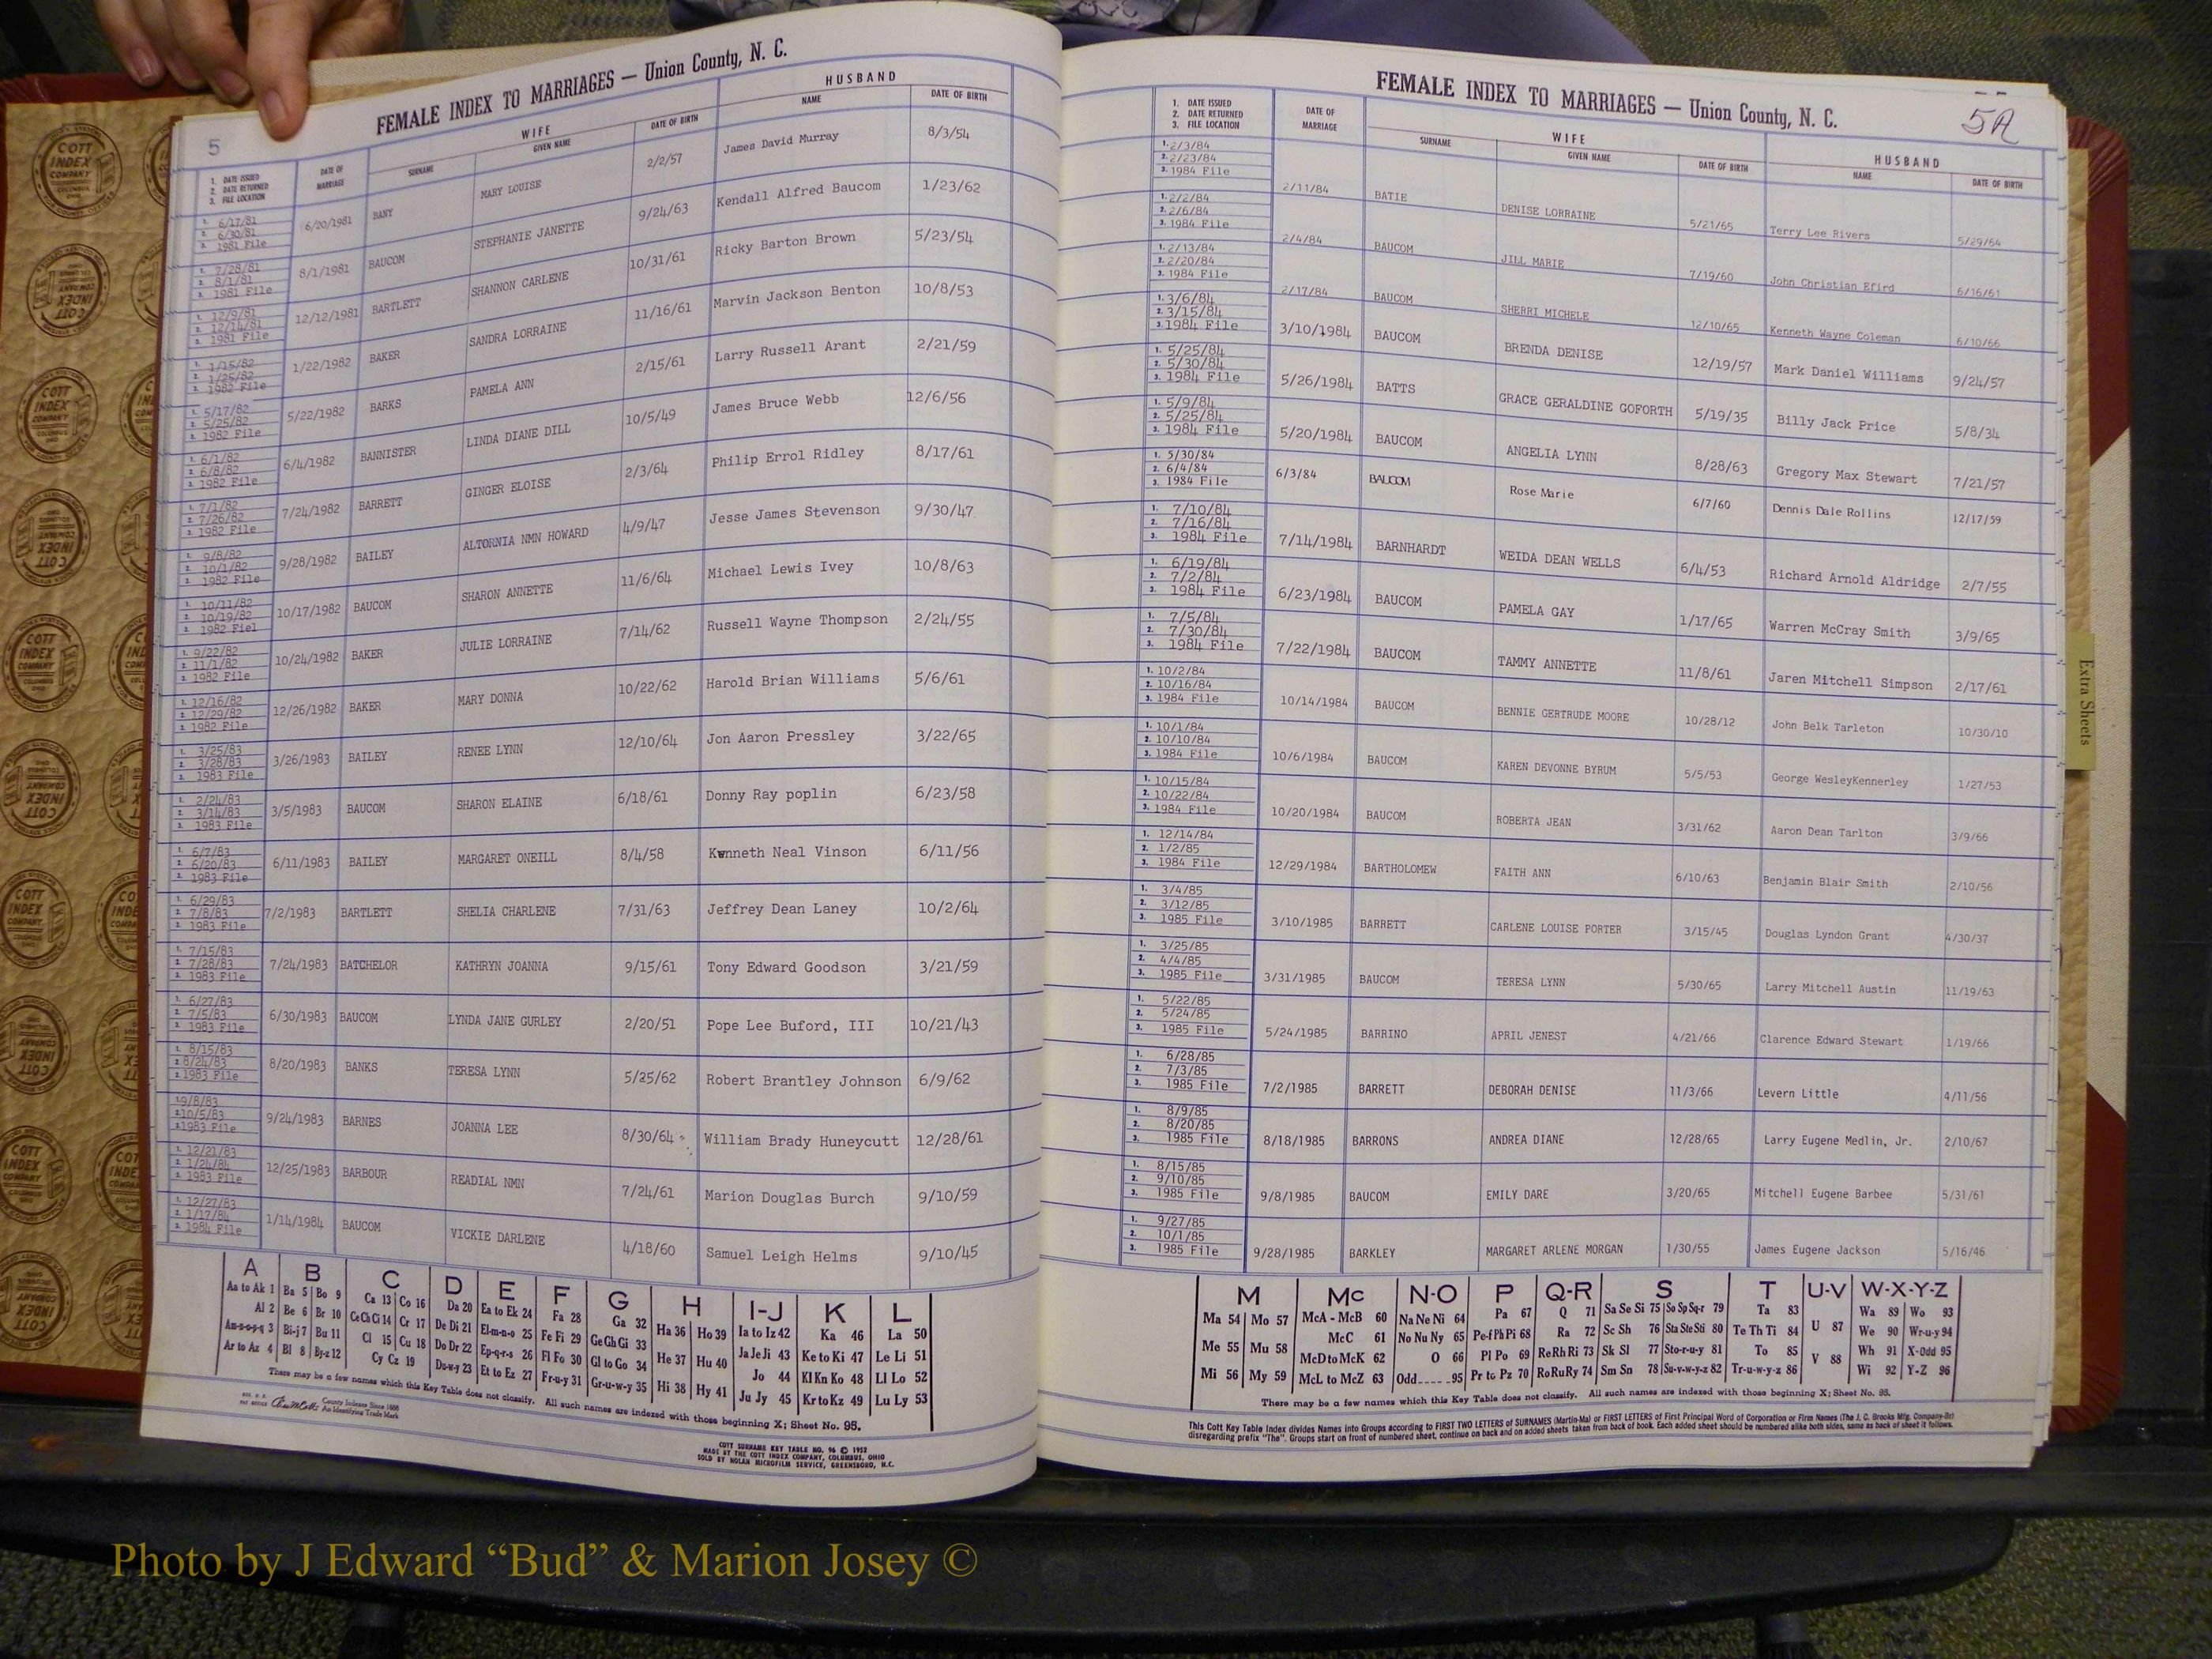 5
FEMALE INDEX TO MARRIAGES — Union County, N. C.
1. DATE ISSUED 2. DATE RETURNED 3. FILE LOCATION | DATE OF MARRIAGE | WIFE SURNAME | GIVEN NAME | DATE OF BIRTH | HUSBAND NAME | DATE OF BIRTH
1. 6/17/81 2. 6/30/81 3. 1981 File | 6/20/1981 | BANY | MARY LOUISE | 2/2/57 | James David Murray | 8/3/54
1. 7/28/81 2. 8/1/81 3. 1981 File | 8/1/1981 | BAUCOM | STEPHANIE JANETTE | 9/24/63 | Kendall Alfred Baucom | 1/23/62
1. 12/9/81 2. 12/14/81 3. 1981 File | 12/12/1981 | BARTLETT | SHANNON CARLENE | 10/31/61 | Ricky Barton Brown | 5/23/54
1. 1/15/82 2. 1/25/82 3. 1982 File | 1/22/1982 | BAKER | SANDRA LORRAINE | 11/16/61 | Marvin Jackson Benton | 10/8/53
1. 5/17/82 2. 5/25/82 3. 1982 File | 5/22/1982 | BARKS | PAMELA ANN | 2/15/61 | Larry Russell Arant | 2/21/59
1. 6/1/82 2. 6/8/82 3. 1982 File | 6/4/1982 | BANNISTER | LINDA DIANE DILL | 10/5/49 | James Bruce Webb | 12/6/56
1. 7/1/82 2. 7/26/82 3. 1982 File | 7/24/1982 | BARRETT | GINGER ELOISE | 2/3/64 | Philip Errol Ridley | 8/17/61
1. 9/8/82 2. 10/1/82 3. 1982 File | 9/28/1982 | BAILEY | ALTORNIA NMN HOWARD | 4/9/47 | Jesse James Stevenson | 9/30/47
1. 10/11/82 2. 10/19/82 3. 1982 Fiel | 10/17/1982 | BAUCOM | SHARON ANNETTE | 11/6/64 | Michael Lewis Ivey | 10/8/63
1. 9/22/82 2. 11/1/82 3. 1982 File | 10/24/1982 | BAKER | JULIE LORRAINE | 7/14/62 | Russell Wayne Thompson | 2/24/55
1. 12/16/82 2. 12/29/82 3. 1982 File | 12/26/1982 | BAKER | MARY DONNA | 10/22/62 | Harold Brian Williams | 5/6/61
1. 3/25/83 2. 3/28/83 3. 1983 File | 3/26/1983 | BAILEY | RENEE LYNN | 12/10/64 | Jon Aaron Pressley | 3/22/65
1. 2/24/83 2. 3/14/83 3. 1983 File | 3/5/1983 | BAUCOM | SHARON ELAINE | 6/18/61 | Donny Ray poplin | 6/23/58
1. 6/7/83 2. 6/20/83 3. 1983 File | 6/11/1983 | BAILEY | MARGARET ONEILL | 8/4/58 | Kwnneth Neal Vinson | 6/11/56
1. 6/29/83 2. 7/8/83 3. 1983 File | 7/2/1983 | BARTLETT | SHELIA CHARLENE | 7/31/63 | Jeffrey Dean Laney | 10/2/64
1. 7/15/83 2. 7/28/83 3. 1983 File | 7/24/1983 | BATCHELOR | KATHRYN JOANNA | 9/15/61 | Tony Edward Goodson | 3/21/59
1. 6/27/83 2. 7/5/83 3. 1983 File | 6/30/1983 | BAUCOM | LYNDA JANE GURLEY | 2/20/51 | Pope Lee Buford, III | 10/21/43
1. 8/15/83 2. 8/24/83 3. 1983 File | 8/20/1983 | BANKS | TERESA LYNN | 5/25/62 | Robert Brantley Johnson | 6/9/62
1. 9/8/83 2. 10/5/83 3. 1983 File | 9/24/1983 | BARNES | JOANNA LEE | 8/30/64 | William Brady Huneycutt | 12/28/61
1. 12/21/83 2. 1/24/84 3. 1983 File | 12/25/1983 | BARBOUR | READIAL NMN | 7/24/61 | Marion Douglas Burch | 9/10/59
1. 12/27/83 2. 1/17/84 3. 1984 File | 1/14/1984 | BAUCOM | VICKIE DARLENE | 4/18/60 | Samuel Leigh Helms | 9/10/45
A B C D E F G H I-J K L
Aa to Ak 1 | Ba 5 | Bo 9 | Ca 13 | Co 16 | Da 20 | Ea to Ek 24 | Fa 28 | Ga 32 | Ha 36 | Ho 39 | Ia to Iz 42 | Ka 46 | La 50
Al 2 | Be 6 | Br 10 | Ce Ch Ci 14 | Cr 17 | De Di 21 | El-m-n-o 25 | Fe Fi 29 | Ge Gh Gi 33 | He 37 | Hu 40 | Ja Je Ji 43 | Ke to Ki 47 | Le Li 51
Am-n-o-p-q 3 | Bi-j 7 | Bu 11 | Cl 15 | Cu 18 | Do Dr 22 | Ep-q-r-s 26 | Fl Fo 30 | Gl to Go 34 | Hi 38 | Hy 41 | Jo 44 | Kl Kn Ko 48 | Ll Lo 52
Ar to Az 4 | Bl 8 | By-z 12 | Cy Cz 19 | Du-w-y 23 | Et to Ez 27 | Fr-u-y 31 | Gr-u-w-y 35 | Ju Jy 45 | Kr to Kz 49 | Lu Ly 53
There may be a few names which this Key Table does not classify. All such names are indexed with those beginning X; Sheet No. 95.
County Indexes Since 1888
An Identifying Trade Mark
COTT SURNAME KEY TABLE NO. 96 © 1952
MADE BY THE COTT INDEX COMPANY, COLUMBUS, OHIO
SOLD BY NOLAN MICROFILM SERVICE, GREENSBORO, N.C.
FEMALE INDEX TO MARRIAGES — Union County, N. C.
5A
1. DATE ISSUED 2. DATE RETURNED 3. FILE LOCATION | DATE OF MARRIAGE | WIFE SURNAME | GIVEN NAME | DATE OF BIRTH | HUSBAND NAME | DATE OF BIRTH
1. 2/3/84 2. 2/23/84 3. 1984 File | 2/11/84 | BATIE | DENISE LORRAINE | 5/21/65 | Terry Lee Rivers | 5/29/64
1. 2/2/84 2. 2/6/84 3. 1984 File | 2/4/84 | BAUCOM | JILL MARIE | 7/19/60 | John Christian Efird | 6/16/61
1. 2/13/84 2. 2/20/84 3. 1984 File | 2/17/84 | BAUCOM | SHERRI MICHELE | 12/10/65 | Kenneth Wayne Coleman | 6/10/66
1. 3/6/84 2. 3/15/84 3. 1984 File | 3/10/1984 | BAUCOM | BRENDA DENISE | 12/19/57 | Mark Daniel Williams | 9/24/57
1. 5/25/84 2. 5/30/84 3. 1984 File | 5/26/1984 | BATTS | GRACE GERALDINE GOFORTH | 5/19/35 | Billy Jack Price | 5/8/34
1. 5/9/84 2. 5/25/84 3. 1984 File | 5/20/1984 | BAUCOM | ANGELIA LYNN | 8/28/63 | Gregory Max Stewart | 7/21/57
1. 5/30/84 2. 6/4/84 3. 1984 File | 6/3/84 | BAUCOM | Rose Marie | 6/7/60 | Dennis Dale Rollins | 12/17/59
1. 7/10/84 2. 7/16/84 3. 1984 File | 7/14/1984 | BARNHARDT | WEIDA DEAN WELLS | 6/4/53 | Richard Arnold Aldridge | 2/7/55
1. 6/19/84 2. 7/2/84 3. 1984 File | 6/23/1984 | BAUCOM | PAMELA GAY | 1/17/65 | Warren McCray Smith | 3/9/65
1. 7/5/84 2. 7/30/84 3. 1984 File | 7/22/1984 | BAUCOM | TAMMY ANNETTE | 11/8/61 | Jaren Mitchell Simpson | 2/17/61
1. 10/2/84 2. 10/16/84 3. 1984 File | 10/14/1984 | BAUCOM | BENNIE GERTRUDE MOORE | 10/28/12 | John Belk Tarleton | 10/30/10
1. 10/1/84 2. 10/10/84 3. 1984 File | 10/6/1984 | BAUCOM | KAREN DEVONNE BYRUM | 5/5/53 | George WesleyKennerley | 1/27/53
1. 10/15/84 2. 10/22/84 3. 1984 File | 10/20/1984 | BAUCOM | ROBERTA JEAN | 3/31/62 | Aaron Dean Tarlton | 3/9/66
1. 12/14/84 2. 1/2/85 3. 1984 File | 12/29/1984 | BARTHOLOMEW | FAITH ANN | 6/10/63 | Benjamin Blair Smith | 2/10/56
1. 3/4/85 2. 3/12/85 3. 1985 File | 3/10/1985 | BARRETT | CARLENE LOUISE PORTER | 3/15/45 | Douglas Lyndon Grant | 4/30/37
1. 3/25/85 2. 4/4/85 3. 1985 File | 3/31/1985 | BAUCOM | TERESA LYNN | 5/30/65 | Larry Mitchell Austin | 11/19/63
1. 5/22/85 2. 5/24/85 3. 1985 File | 5/24/1985 | BARRINO | APRIL JENEST | 4/21/66 | Clarence Edward Stewart | 1/19/66
1. 6/28/85 2. 7/3/85 3. 1985 File | 7/2/1985 | BARRETT | DEBORAH DENISE | 11/3/66 | Levern Little | 4/11/56
1. 8/9/85 2. 8/20/85 3. 1985 File | 8/18/1985 | BARRONS | ANDREA DIANE | 12/28/65 | Larry Eugene Medlin, Jr. | 2/10/67
1. 8/15/85 2. 9/10/85 3. 1985 File | 9/8/1985 | BAUCOM | EMILY DARE | 3/20/65 | Mitchell Eugene Barbee | 5/31/61
1. 9/27/85 2. 10/1/85 3. 1985 File | 9/28/1985 | BARKLEY | MARGARET ARLENE MORGAN | 1/30/55 | James Eugene Jackson | 5/16/46
M Mc N-O P Q-R S T U-V W-X-Y-Z
Ma 54 | Mo 57 | McA - McB 60 | Na Ne Ni 64 | Pa 67 | Q 71 | Sa Se Si 75 | So Sp Sq-r 79 | Ta 83 | U 87 | Wa 89 | Wo 93
Me 55 | Mu 58 | McC 61 | No Nu Ny 65 | Pe-f Ph Pi 68 | Ra 72 | Sc Sh 76 | Sta Ste Sti 80 | Te Th Ti 84 | V 88 | We 90 | Wr-u-y 94
Mi 56 | My 59 | McD to McK 62 | O 66 | Pl Po 69 | Re Rh Ri 73 | Sk Sl 77 | Sto-r-u-y 81 | To 85 | Wh 91 | X-Odd 95
McL to McZ 63 | Odd 95 | Pr to Pz 70 | Ro Ru Ry 74 | Sm Sn 78 | Su-v-w-y-z 82 | Tr-u-w-y-z 86 | Wi 92 | Y-Z 96
There may be a few names which this Key Table does not classify. All such names are indexed with those beginning X; Sheet No. 95.
This Cott Key Table Index divides Names into Groups according to FIRST TWO LETTERS of SURNAMES (Martin-Ma) or FIRST LETTERS of First Principal Word of Corporation or Firm Names (The J. C. Brooks Mfg. Company-Br)
disregarding prefix "The". Groups start on front of numbered sheet, continue on back and on added sheets taken from back of book. Each added sheet should be numbered alike both sides, same as back of sheet it follows.
Extra Sheets
COTT INDEX COMPANY
Photo by J Edward “Bud” & Marion Josey ©